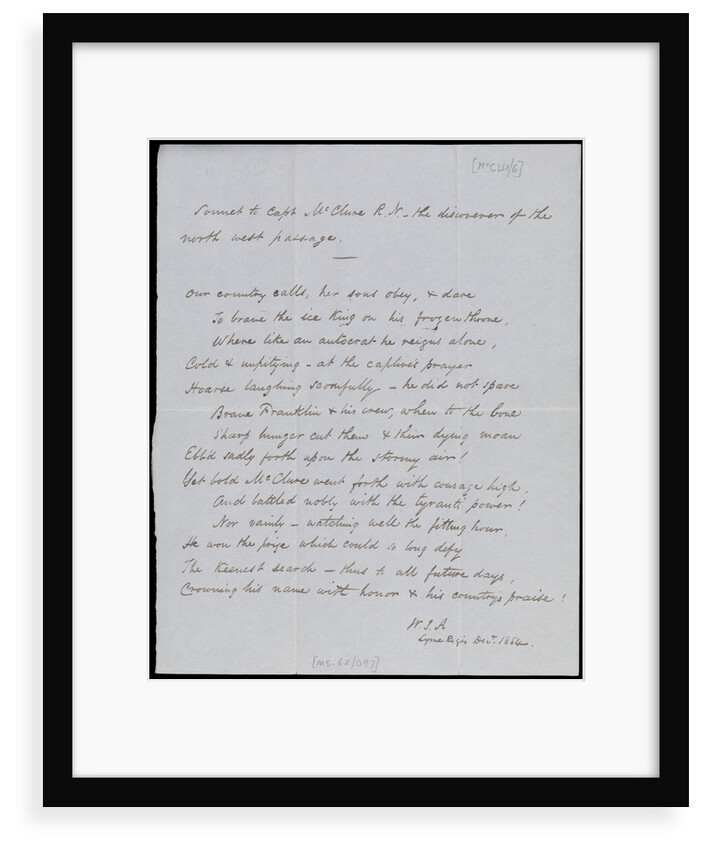 [McCLU/6]
Sonnet to Capt McClure R.N - the discoverer of the
north west passage.
Our country calls, her sons obey, & dare
To brave the ice King on his frozen throne,
Where like an autocrat he reigns alone,
Cold & unpitying - at the captive's prayer
Hoarse laughing scornfully - he did not spare
Brave Franklin & his crew, when to the bone
Sharp hunger cut them & their dying moan
Ebb'd sadly forth upon the stormy air!
Yet bold McClure went forth with courage high,
And battled nobly with the tyrant's power!
Nor vainly - watching well the fitting hour,
He won the prize which could so long defy
The keenest search - thus to all future days,
Crowning his name with honor & his country's praise!
W.S.A
Lyme Regis 1854.
[MS.62/097]